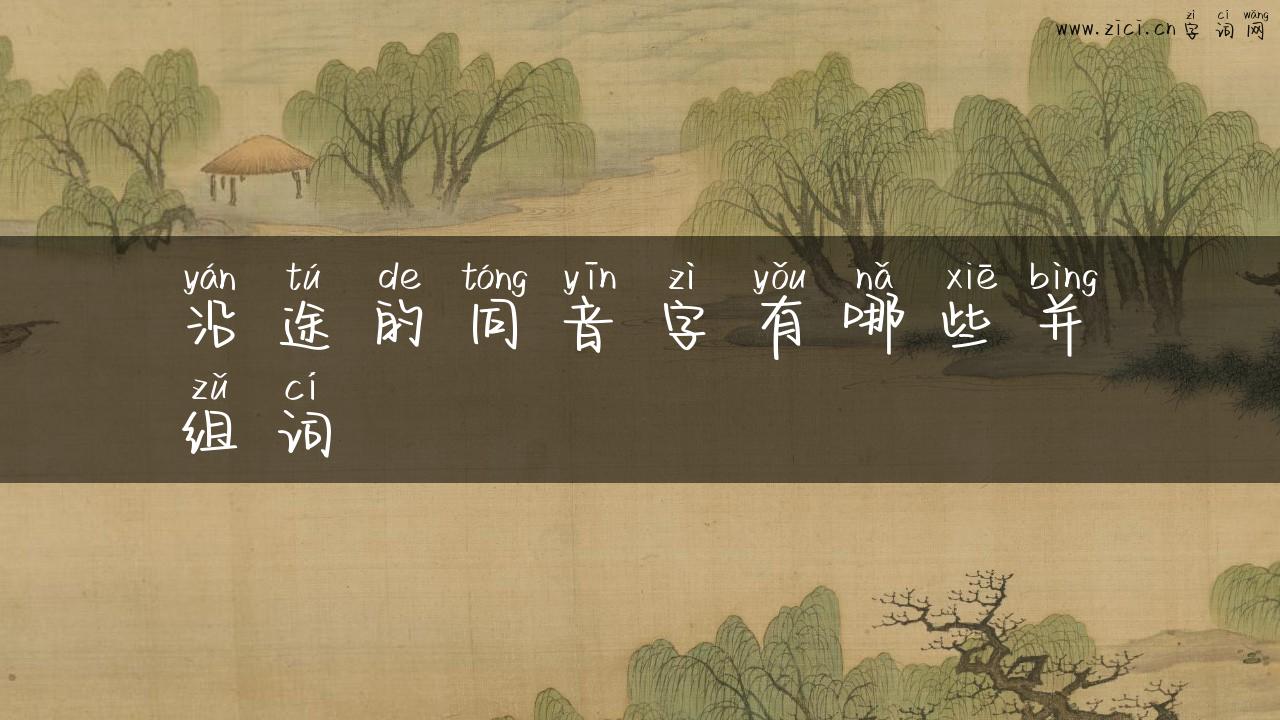 zì cí wǎng
www.zici.cn字词网
yán tú de tóng yīn zì yǒu nǎ xiē bìng
沿途的同音字有哪些并
zǔ cí
组词